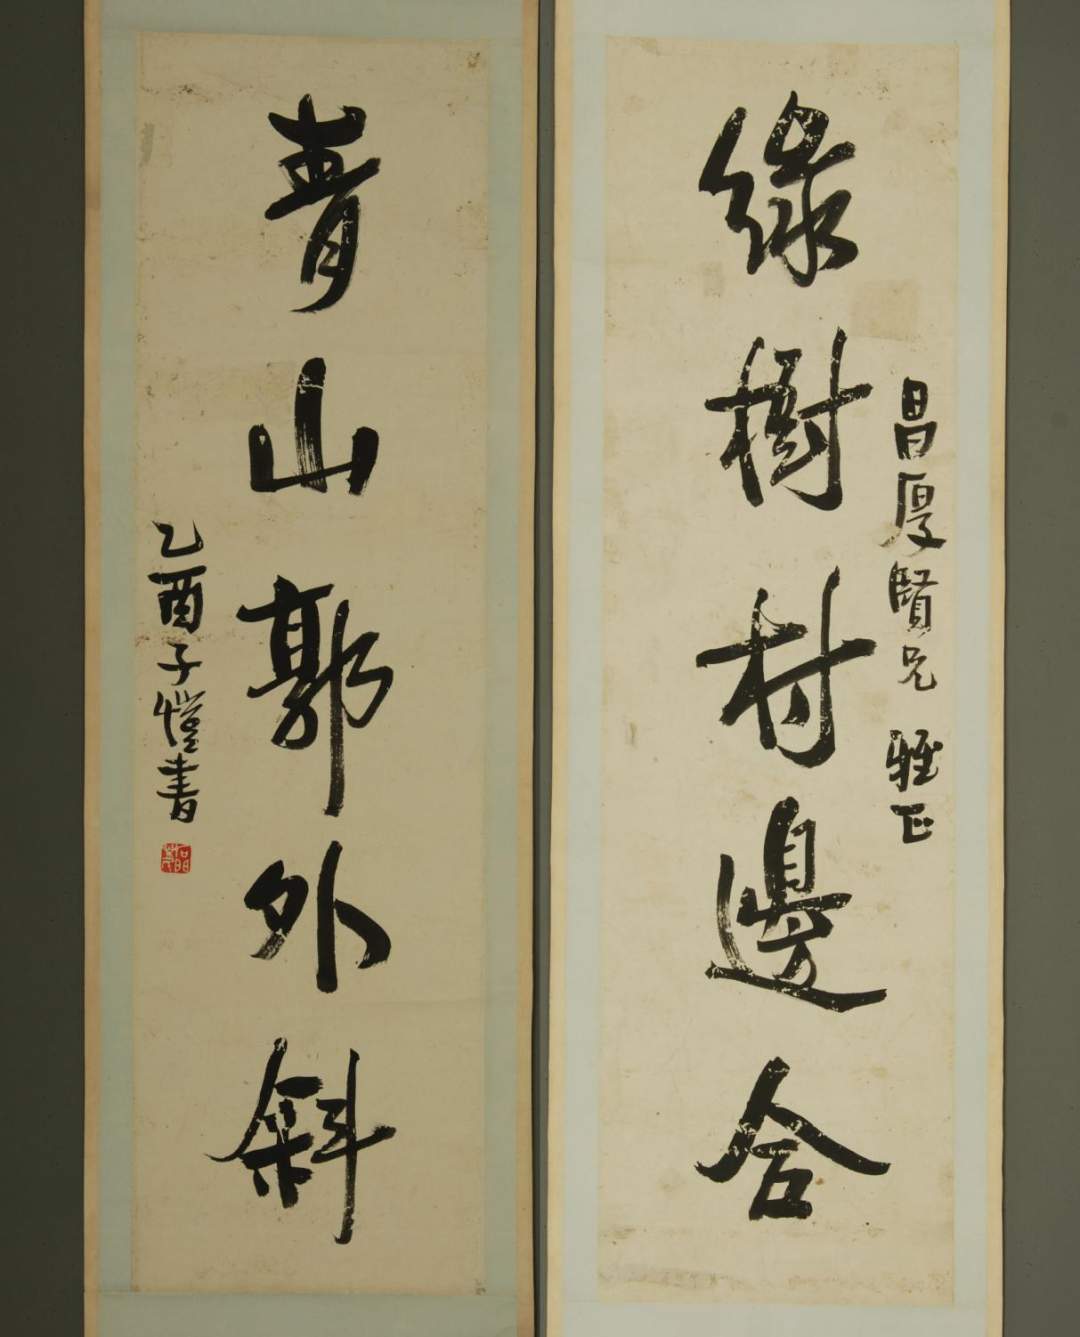 昌厚賢兄 雅正
綠樹村邊合
青山郭外斜
乙酉子愷書